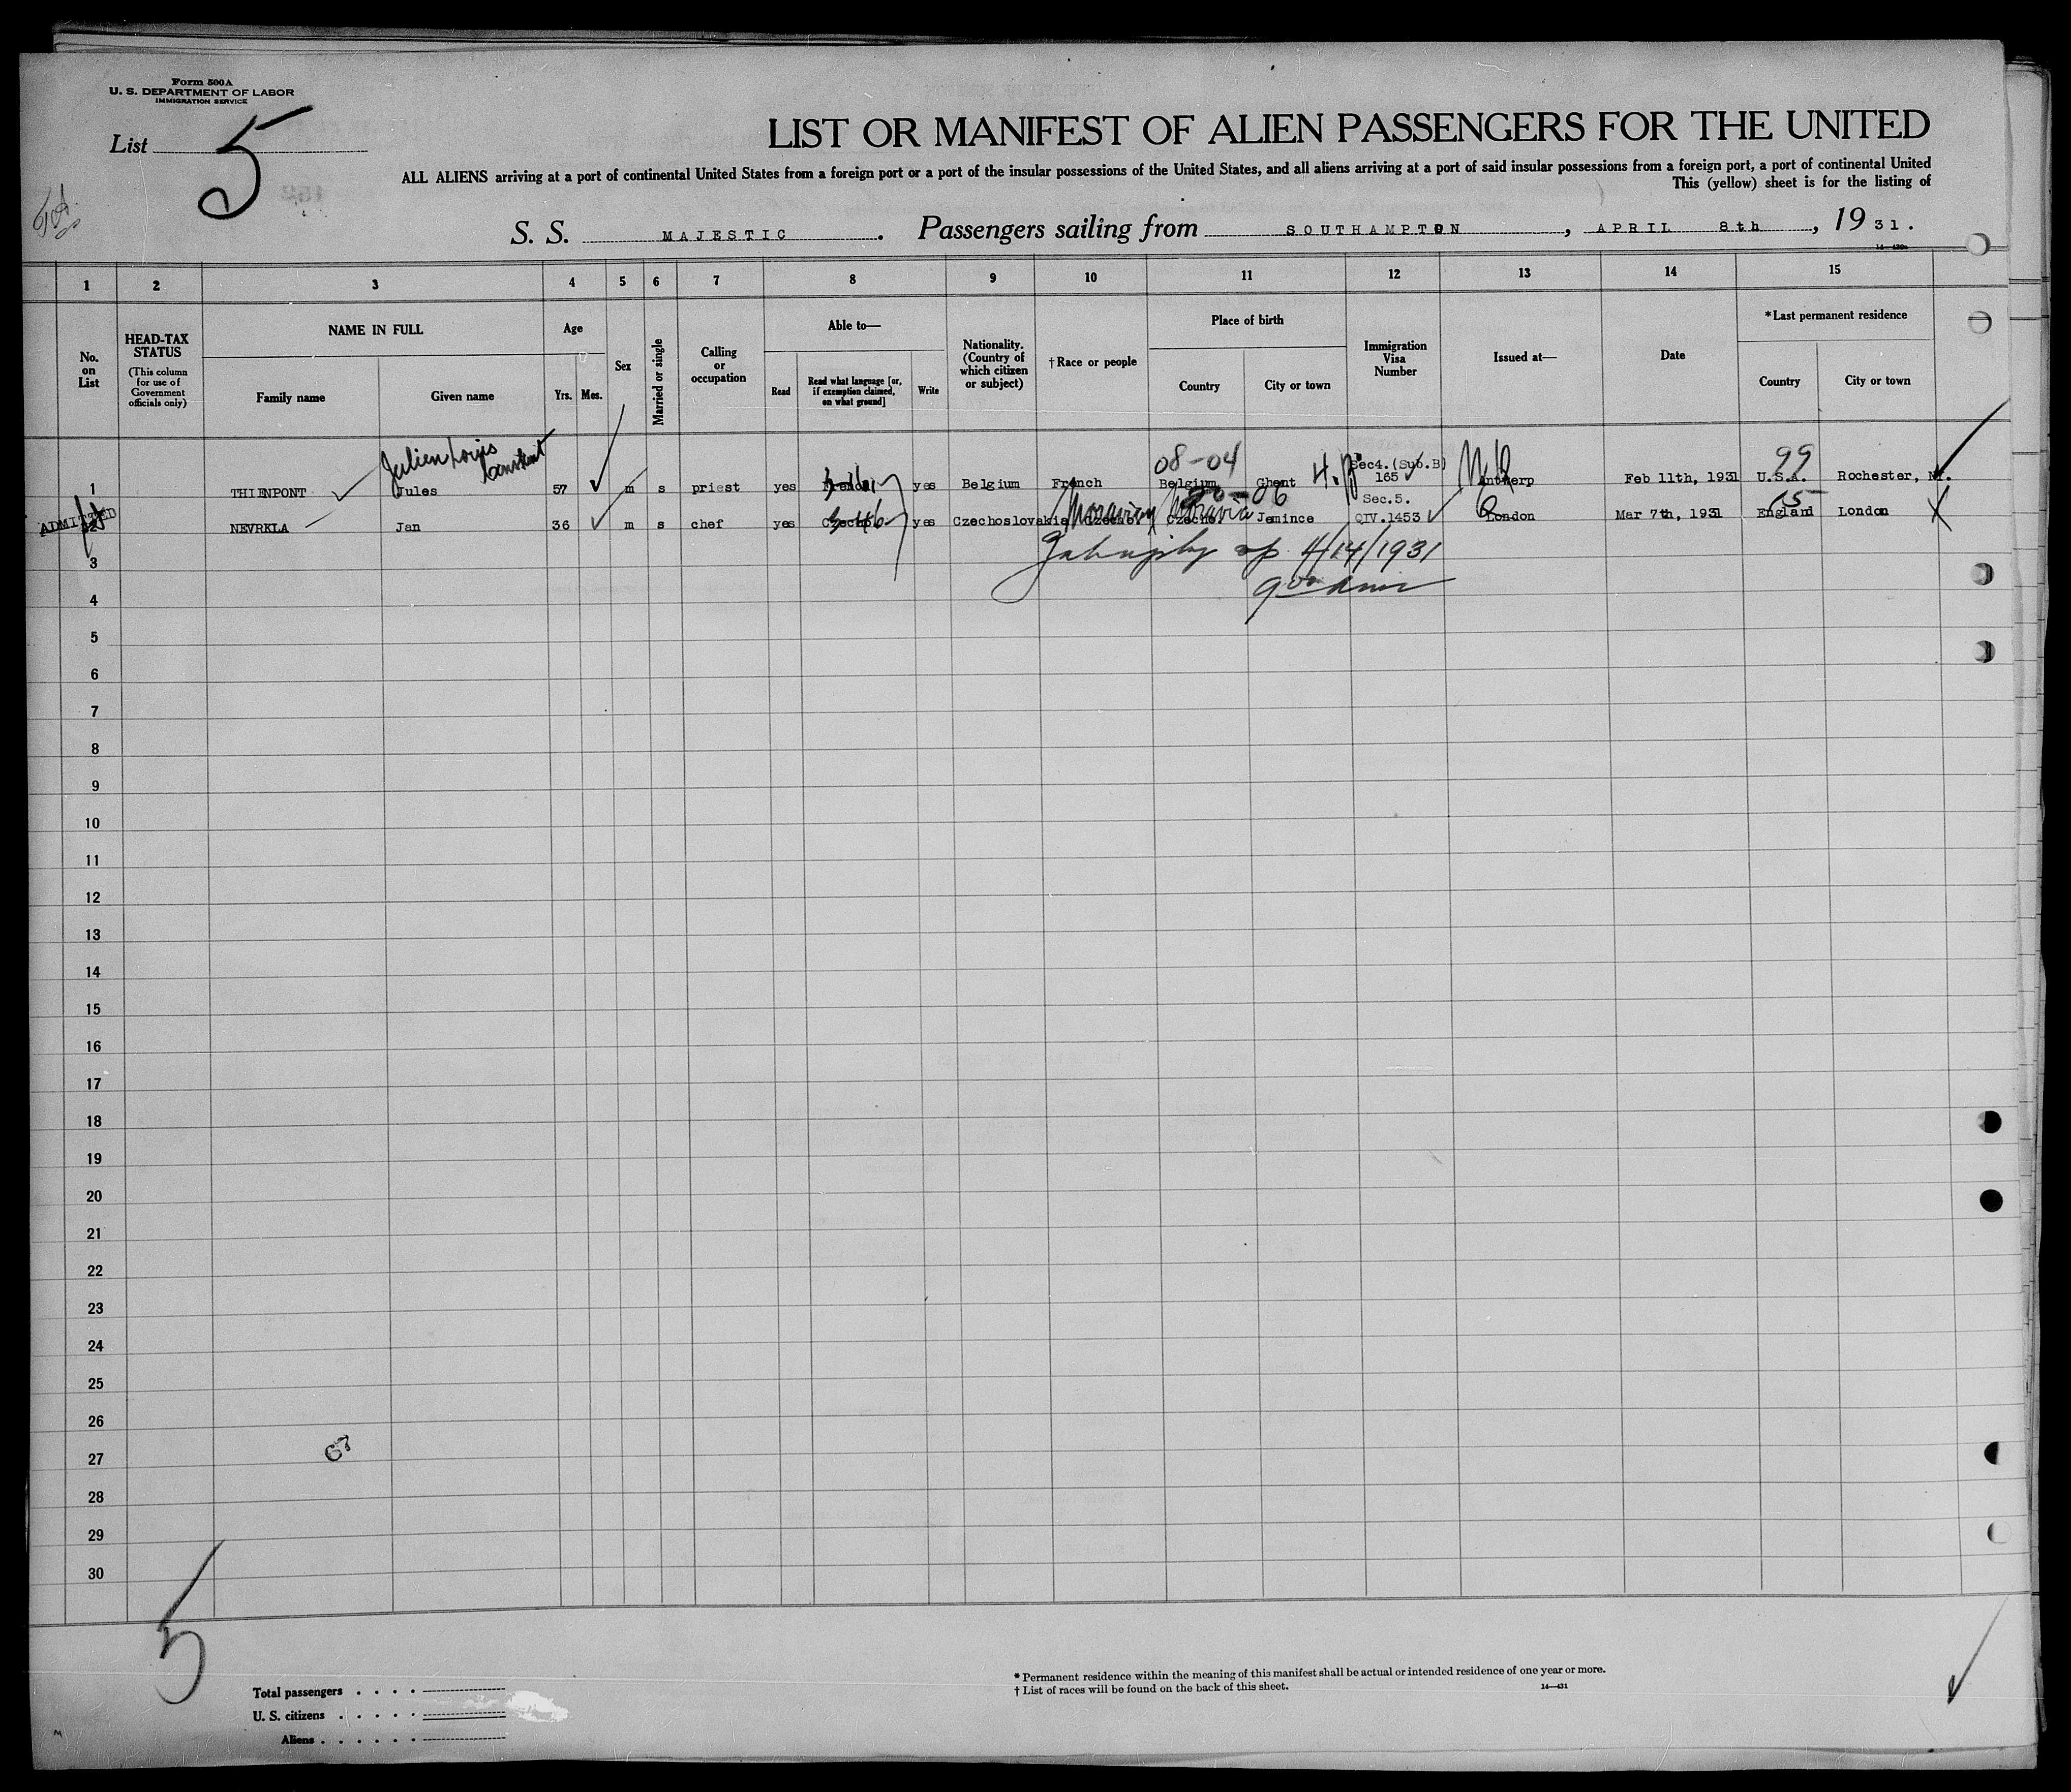 Form 500A
U. S. DEPARTMENT OF LABOR
IMMIGRATION SERVICE
List 5
LIST OR MANIFEST OF ALIEN PASSENGERS FOR THE UNITED
ALL ALIENS arriving at a port of continental United States from a foreign port or a port of the insular possessions of the United States, and all aliens arriving at a port of said insular possessions from a foreign port, a port of continental United
This (yellow) sheet is for the listing of
S. S. MAJESTIC . Passengers sailing from SOUTHAMPTON , APRIL 8th , 19 31.
1 2 3 4 5 6 7 8 9 10 11 12 13 14 15
No. on List
HEAD-TAX STATUS
(This column for use of Government officials only)
NAME IN FULL
Family name
Given name
Age
Yrs. Mos.
Sex
Married or single
Calling or occupation
Able to—
Read
Read what language [or, if exemption claimed, on what ground]
Write
Nationality. (Country of which citizen or subject)
†Race or people
Place of birth
Country
City or town
Immigration Visa Number
Issued at—
Date
*Last permanent residence
Country
City or town
Julien Louis Constant
08-04
99
Sec4. (Sub.B)
1 THIENPONT Jules 57 m s priest yes French yes Belgium French Belgium Ghent 165 Antwerp Feb 11th, 1931 U.S.A. Rochester, NY.
Moravian Moravia 06 Sec.5. 15
ADMITTED
2 NEVRKLA Jan 36 m s chef yes Czecho yes Czechoslovakia Czecho Czecho Jemince QIV.1453 London Mar 7th, 1931 England London
3 4/14/1931
4
5
6
7
8
9
10
11
12
13
14
15
16
17
18
19
20
21
22
23
24
25
26
27
28
29
30
67
5
Total passengers . . . .
U. S. citizens . . . . .
Aliens . . . . . .
* Permanent residence within the meaning of this manifest shall be actual or intended residence of one year or more.
† List of races will be found on the back of this sheet.
14—431